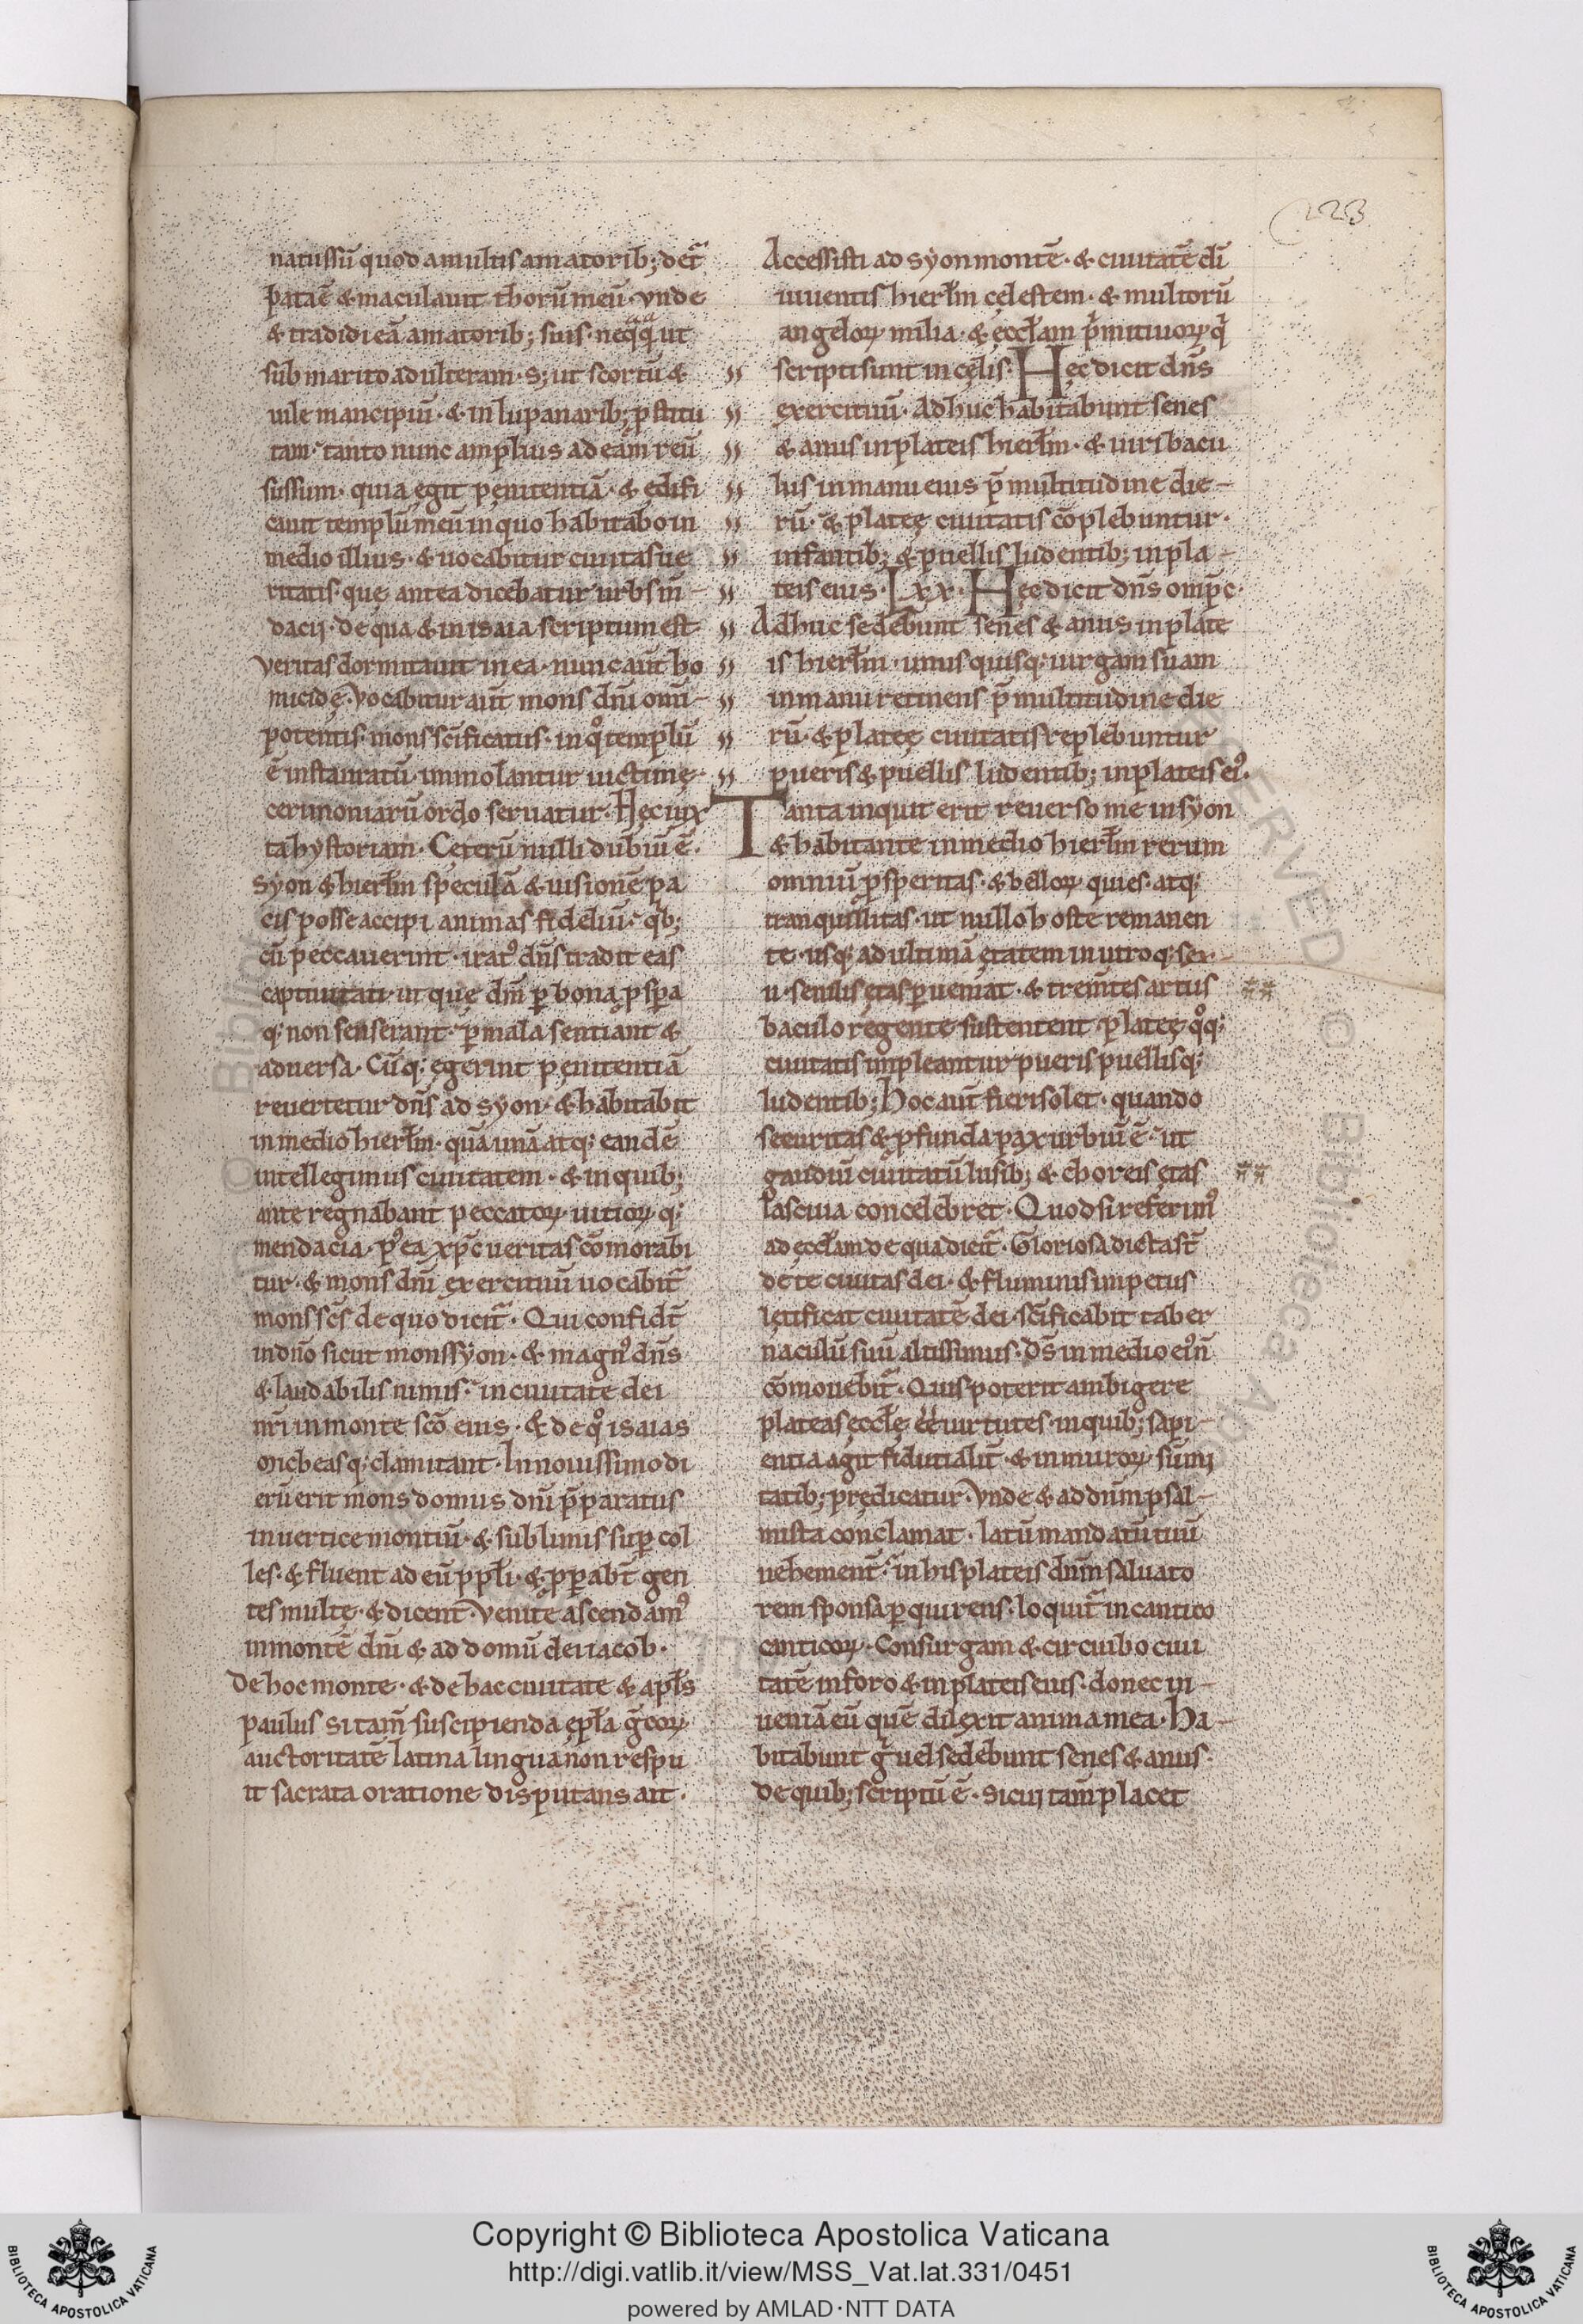 223
natussū quod a multis amatorib; det̃
patā ē & maculauit thorū meū. vnde
& tradidi eā amatorib; suis. neq̃q̃ ut
sub marito adulteram. s; ut scortū &
uile mancipiū. & in lupanarib; ꝓstitu
tam. tanto nunc amplius ad eam reū
sussum. quia ęgit pęnitentiā. & ędifi
cauit templū meū in quo habitabo in
medio illius. & uocabitur ciuitas ue
ritatis. quę antea dicebatur urbs m̄
dacij. de qua & in isaia scriptum est
veritas dormitauit in ea. nunc aut̄ ho
micidę. Vocabitur aut̄ mons dn̄i omī
potentis. mons sc̄ificatus. in qͦ templū
ē instauratū. immolantur uictimę.
cerimoniarū ordo seruatur. Hęc iux
ta hystoriam. Ceterū nulli dubiū ē.
syon & hierłm speculā & uisionē pa
cis posse accipi animas fideliū. qͥb;
cū peccauerint. iratꝰ dn̄s tradit eas
captiuitati. ut quę dm̄ ꝑ bona ꝓspera
q; non senserant. ꝑ mala sentiant &
aduersa. Cūq; ęgerint pęnitentiā
reuertetur dn̄s ad syon. & habitabit
in medio hierłm. quā unā atq; eandē
intellegimus ciuitatem. & in quib;
ante regnabant peccatoꝝ uitioꝝ q;
mendacia. pꝰ ea xp̄c ueritas cōmorabi
tur. & mons dn̄i exercituū uocabit̃
mons sc̄s de quo dicit̃. Qui confidt̄
in dn̄o sicut mons syon. & magnꝰ dn̄s
& laudabilis nimis. in ciuitate dei
nr̄i in monte sc̄o eius. & de qͦ isaias
micheasq; clamitant. In nouissimo di
erū erit mons domus dn̄i p̄paratus
in uertice montiū. & sublimis suꝑ col
les. & fluent ad eū ppłi. & ꝓperabt̄ gen
tes multę. & dicent. Venite ascendamꝰ
in montē dn̄i & ad domū dei iacob.
De hoc monte. & de hac ciuitate & apłs
paulus si tam̄ suscipienda epła g̃coꝝ
auctoritatē latina lingua non respu
it sacrata oratione disputans ait.
Accessisti ad syon montē. & ciuitatē di
uiuentis hierłm cęlestem. & multorū
angeloꝝ milia. & ęccłam p̃mitiuoꝝ q̃
scripti sunt in cęlis. Hęc dicit dn̄s
exercituū. Adhuc habitabunt senes
& anus in plateis hierłm. & uiri bacu
lus in manu eius p̄ multitudine die
rū. & plateę ciuitatis cōplebuntur.
infantib; & puellis ludentib; in pla
teis eius. Lxx. Hęc dicit dn̄s omp̄c.
Adhuc sedebunt senes & anus in plate
is hierłm. unus quisq; uirgam suam
in manu retinens p̄ multitudine die
rū. & plateę ciuitatis replebuntur
pueris & puellis ludentib; in plateis eiꝰ.
Tanta inquit erit reuerso me in syon
& habitante in medio hierłm rerum
omniū ꝓsperitas. & belloꝝ quies. atq;
tranquillitas. ut nullo hoste remanen
te. usq; ad ultimā ętatem in utroq; sex
u. senilis ętas ꝑueniat. & trem̄tes artus
baculo regente sustentent. plateę qͦq;
ciuitatis impleantur pueris puellisq;
ludentib; Hoc aut̄ fieri solet. quando
securitas & ꝓfunda pax urbiū ē. ut
gaudiū ciuitatū lusib; & choreis ętas
lasciuia concelebret. Quod si referimꝰ
ad ęccłam de qua dicit̃. Gloriosa dicta st̄
de te ciuitas dei. & fluminis impetus
lętificat ciuitatē dei. sc̄ificabit taber
naculū suū altissimus. Ds̄ in medio eiꝰ n̄
cōmouebit̃. Quis poterit ambigere
plateas ęccłę eē uirtutes. in quib; sapi
entia agit fidutialit̄. & in muroꝝ sūmi
tatib; prędicatur. Vnde & ad dn̄m psal
mista conclamat. latū mandatū tuū
uehement̄. in his plateis dn̄m saluato
rem sponsa ꝑquirens. loquit̃ in cantico
canticoꝝ. Consurgam & circuibo ciui
tatē in foro & in plateis eius. donec in
ueniā eū quē dilexit anima mea. Ha
bitabunt g̃ uel sedebunt senes & anus.
de quib; scriptū ē. Sicuj tam̄ placet
Copyright © Biblioteca Apostolica Vaticana
http://digi.vatlib.it/view/MSS_Vat.lat.331/0451
powered by AMLAD·NTT DATA
BIBLIOTECA APOSTOLICA VATICANA
BIBLIOTECA APOSTOLICA VATICANA